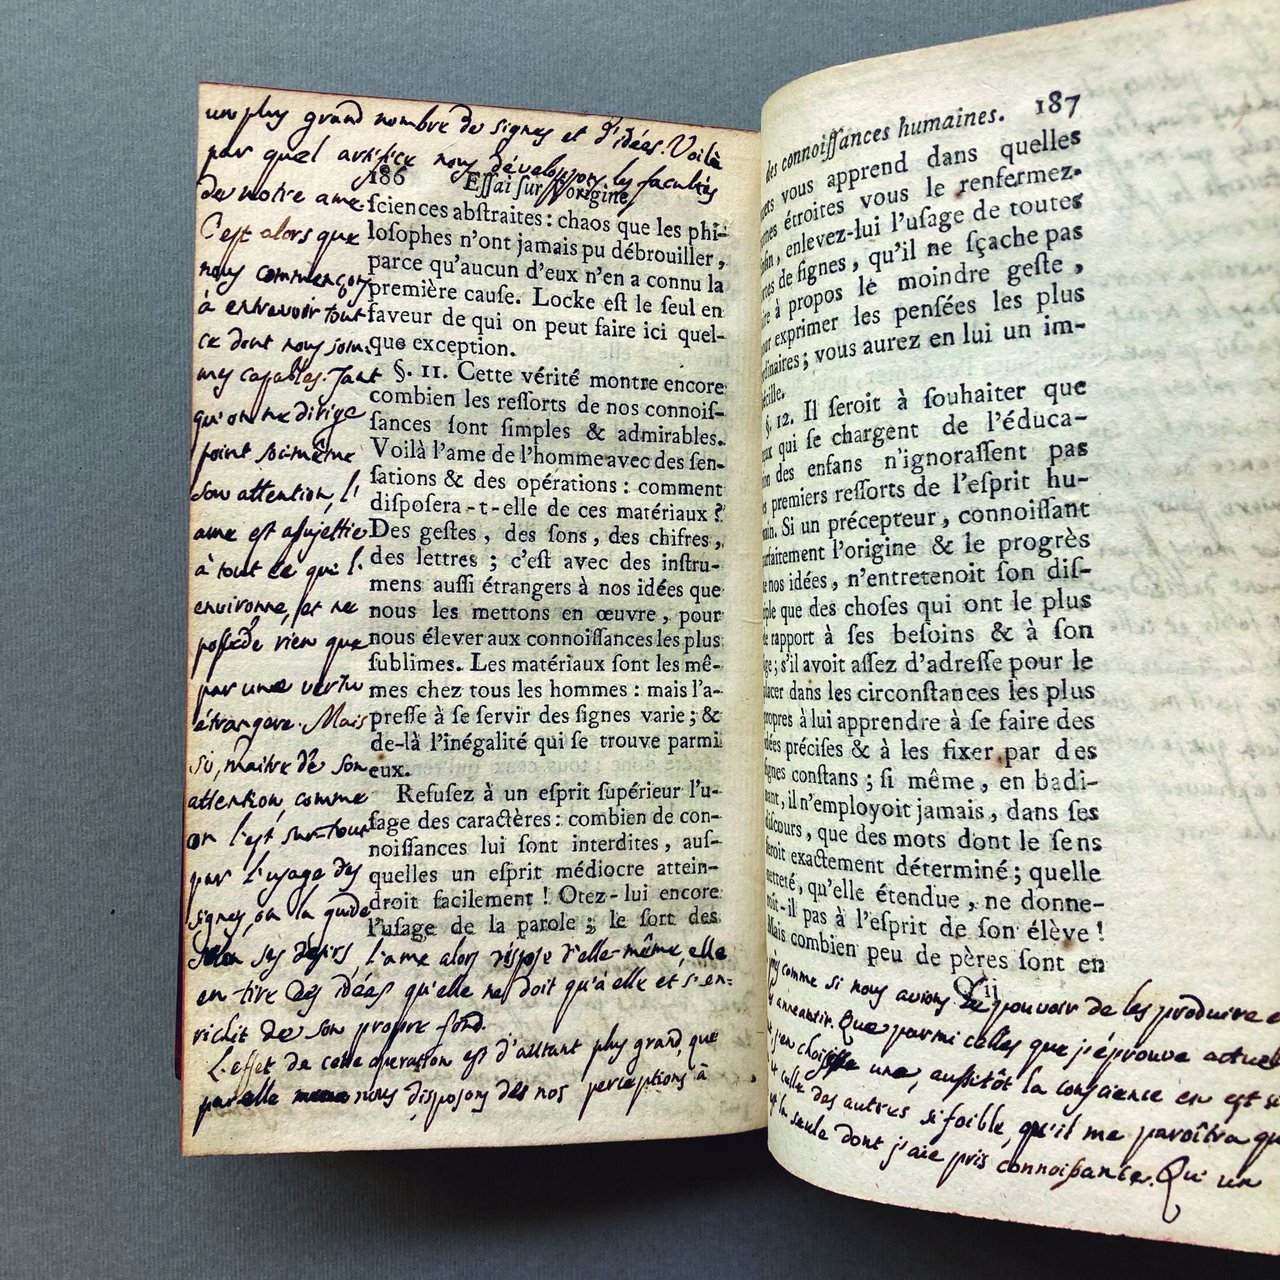 un plus grand nombre de signes et d'idées. Voilà
par quel artifice nous développons les facultés
de notre ame.
C'est alors que
nous commençons
à entrevoir tout
ce dont nous som-
mes capables. Tant
qu'on ne dirige
point soi-même
son attention, l'
ame est assujettie
à tout ce qui l'
environne, et ne
possède rien que
par une vertu
étrangere. Mais
si, maître de son
attention, comme
on l'est sur-tout
par l'usage des
signes, on la guide
selon ses désirs, l'ame alors dispose d'elle-même, elle
en tire des idées qu'elle ne doit qu'à elle et s'en-
richit de son propre fond.
L'effet de cette operation est d'autant plus grand, que
par elle nous disposons de nos perceptions à
186 Essai sur l'origine
ſciences abſtraites : chaos que les phi-
loſophes n'ont jamais pu débrouiller,
parce qu'aucun d'eux n'en a connu la
première cauſe. Locke eſt le ſeul en
faveur de qui on peut faire ici quel-
que exception.
§. 11. Cette vérité montre encore
combien les reſſorts de nos connoiſ-
ſances ſont ſimples & admirables.
Voilà l'ame de l'homme avec des ſen-
ſations & des opérations : comment
diſpoſera-t-elle de ces matériaux ?
Des geſtes, des ſons, des chifres,
des lettres ; c'eſt avec des inſtru-
mens auſſi étrangers à nos idées que
nous les mettons en œuvre, pour
nous élever aux connoiſſances les plus
ſublimes. Les matériaux ſont les mê-
mes chez tous les hommes : mais l'a-
preſſe à ſe ſervir des ſignes varie ; &
de-là l'inégalité qui ſe trouve parmi
eux.
Refuſez à un eſprit ſupérieur l'u-
ſage des caractères : combien de con-
noiſſances lui ſont interdites, auſ-
quelles un eſprit médiocre attein-
droit facilement ! Otez-lui encore
l'uſage de la parole ; le ſort des
des connoiſſances humaines. 187
vous apprend dans quelles
étroites vous le renfermez.
enlevez-lui l'uſage de toutes
de ſignes, qu'il ne ſçache pas
à propos le moindre geſte,
exprimer les penſées les plus
; vous aurez en lui un im-
§. 12. Il ſeroit à ſouhaiter que
qui ſe chargent de l'éduca-
des enfans n'ignoraſſent pas
premiers reſſorts de l'eſprit hu-
Si un précepteur, connoiſſant
l'origine & le progrès
nos idées, n'entretenoit ſon diſ-
que des choſes qui ont le plus
rapport à ſes beſoins & à ſon
; s'il avoit aſſez d'adreſſe pour le
dans les circonſtances les plus
à lui apprendre à ſe faire des
préciſes & à les fixer par des
conſtans ; ſi même, en badi-
il n'employoit jamais, dans ſes
que des mots dont le ſens
exactement déterminé ; quelle
qu'elle étendue, ne donne-
pas à l'eſprit de ſon élève !
Mais combien peu de pères ſont en
Q ij
comme si nous avions le pouvoir de les produire
anneantir. Que parmi celles que j'éprouve
j'en choisisse une, aussitôt la conscience en est si
celle des autres si foible, qu'il me paroîtra
la seule dont j'aie pris connoissance. Qu'un